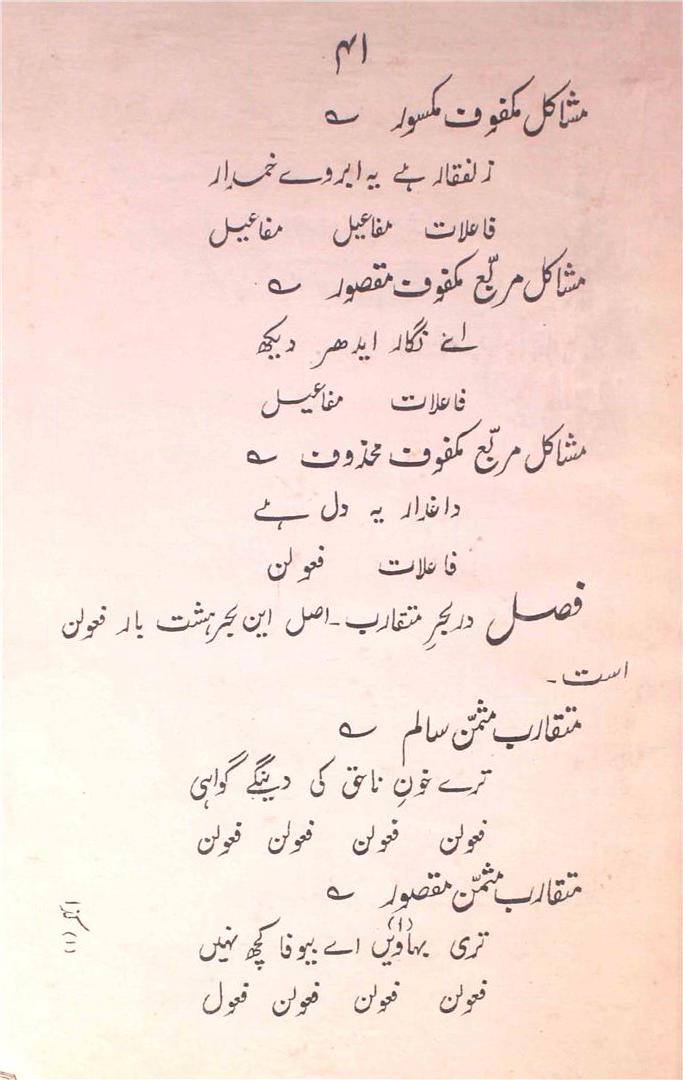 ۴۱
مشاکل مکفوف مکسور ؎
زلفقار ہے یہ ابروے خمدار
فاعلات مفاعیل مفاعیل
مشاکل مربّع مکفوف مقصور ؎
اے نگار ایدھر دیکھ
فاعلات مفاعیل
مشاکل مربّع مکفوف محذوف ؎
داغدار یہ دل ہے
فاعلات فعولن
فصل در بحرِ متقارب۔ اصل این بحر ہشت بار فعولن
است۔
متقارب مثمّن سالم ؎
ترے خونِ ناحق کی دینگے گواہی
فعولن فعولن فعولن فعولن
متقارب مثمّن مقصور ؎
تری بہاویں (۱) اے بیوفا کچھ نہیں
فعولن فعولن فعولن فعول
(۱)